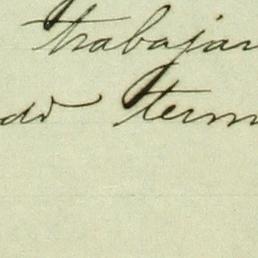 trabajar
do term